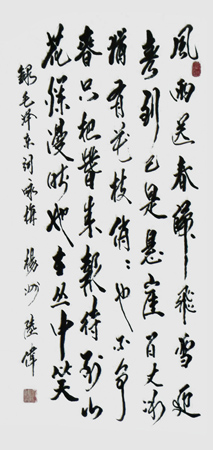 風雨送春歸飛雪迎
春到已是懸崖百丈冰
猶有花枝俏〻也不争
春只把春來報待到山
花爛漫時她在丛中笑
錄毛泽東詞咏梅 楊州 陸偉